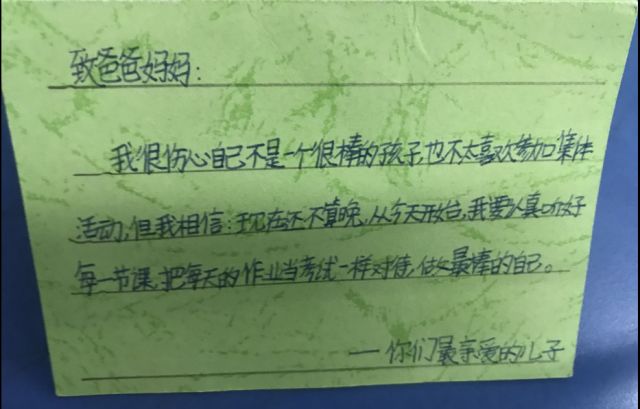 致爸爸妈妈：
我很伤心自己不是一个很棒的孩子，也不太喜欢参加集体
活动，但我相信：现在还不算晚，从今天开始，我要认真听好
每一节课，把每天的作业当考试一样对待，做最棒的自己。
—你们最亲爱的儿子